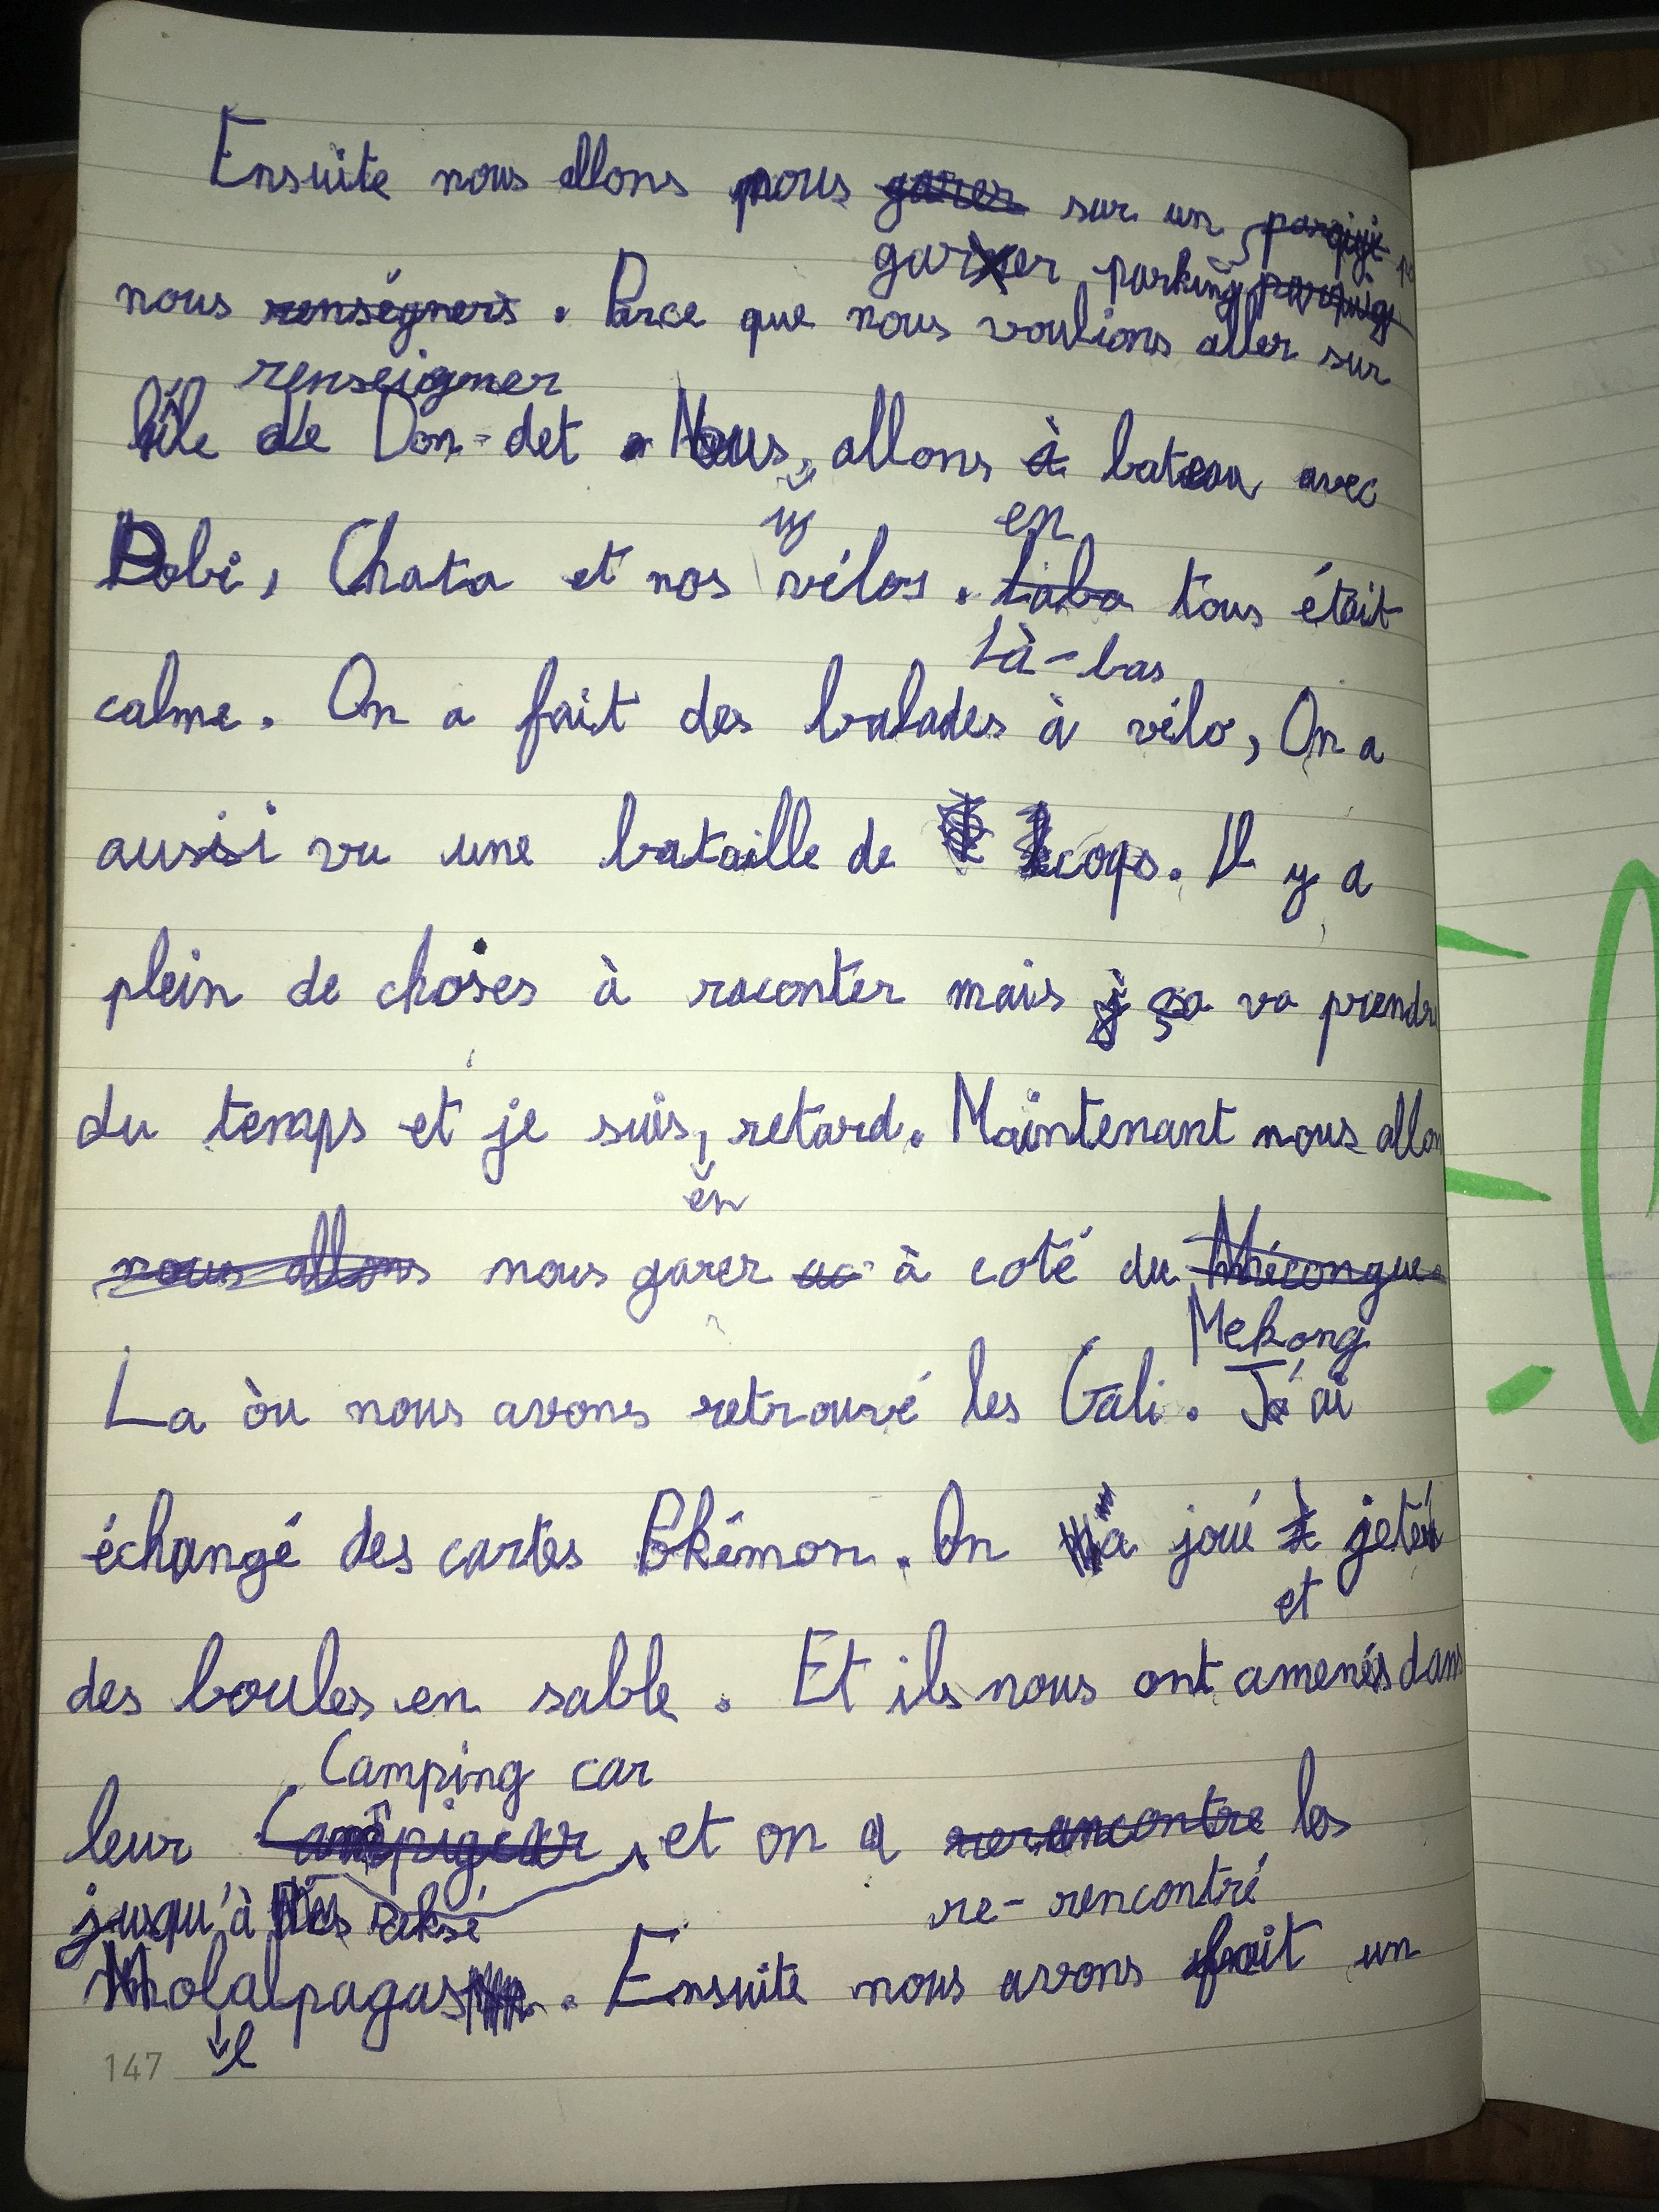 Ensuite nous allons nous garer sur un parqigt
garer parking parquige
nous renségners. Parce que nous voulions aller sur
renseigner
l'île de Don-det. Nous, allons à bateau avec
y en
Dobi, Chata et nos vélos. Laba tous était
Là-bas
calme. On a fait des balades à vélo, On a
aussi vu une bataille de coqs. Il y a
plein de choses à raconter mais ça va prendre
du temps et je suis, retard. Maintenant nous allon
en
nous allons nous garer à coté du Mécongue
Mekong
La òu nous avons retrouvé les Gali. J'ai
échangé des cartes Pokémon. On a joué jeté
et
des boules en sable. Et ils nous ont amenés dans
Camping car
leur Campigcar, et on a rerancontre les
jusqu'à Paksé re-rencontré
Molalpagas. Ensuite nous avons fait un
l
147